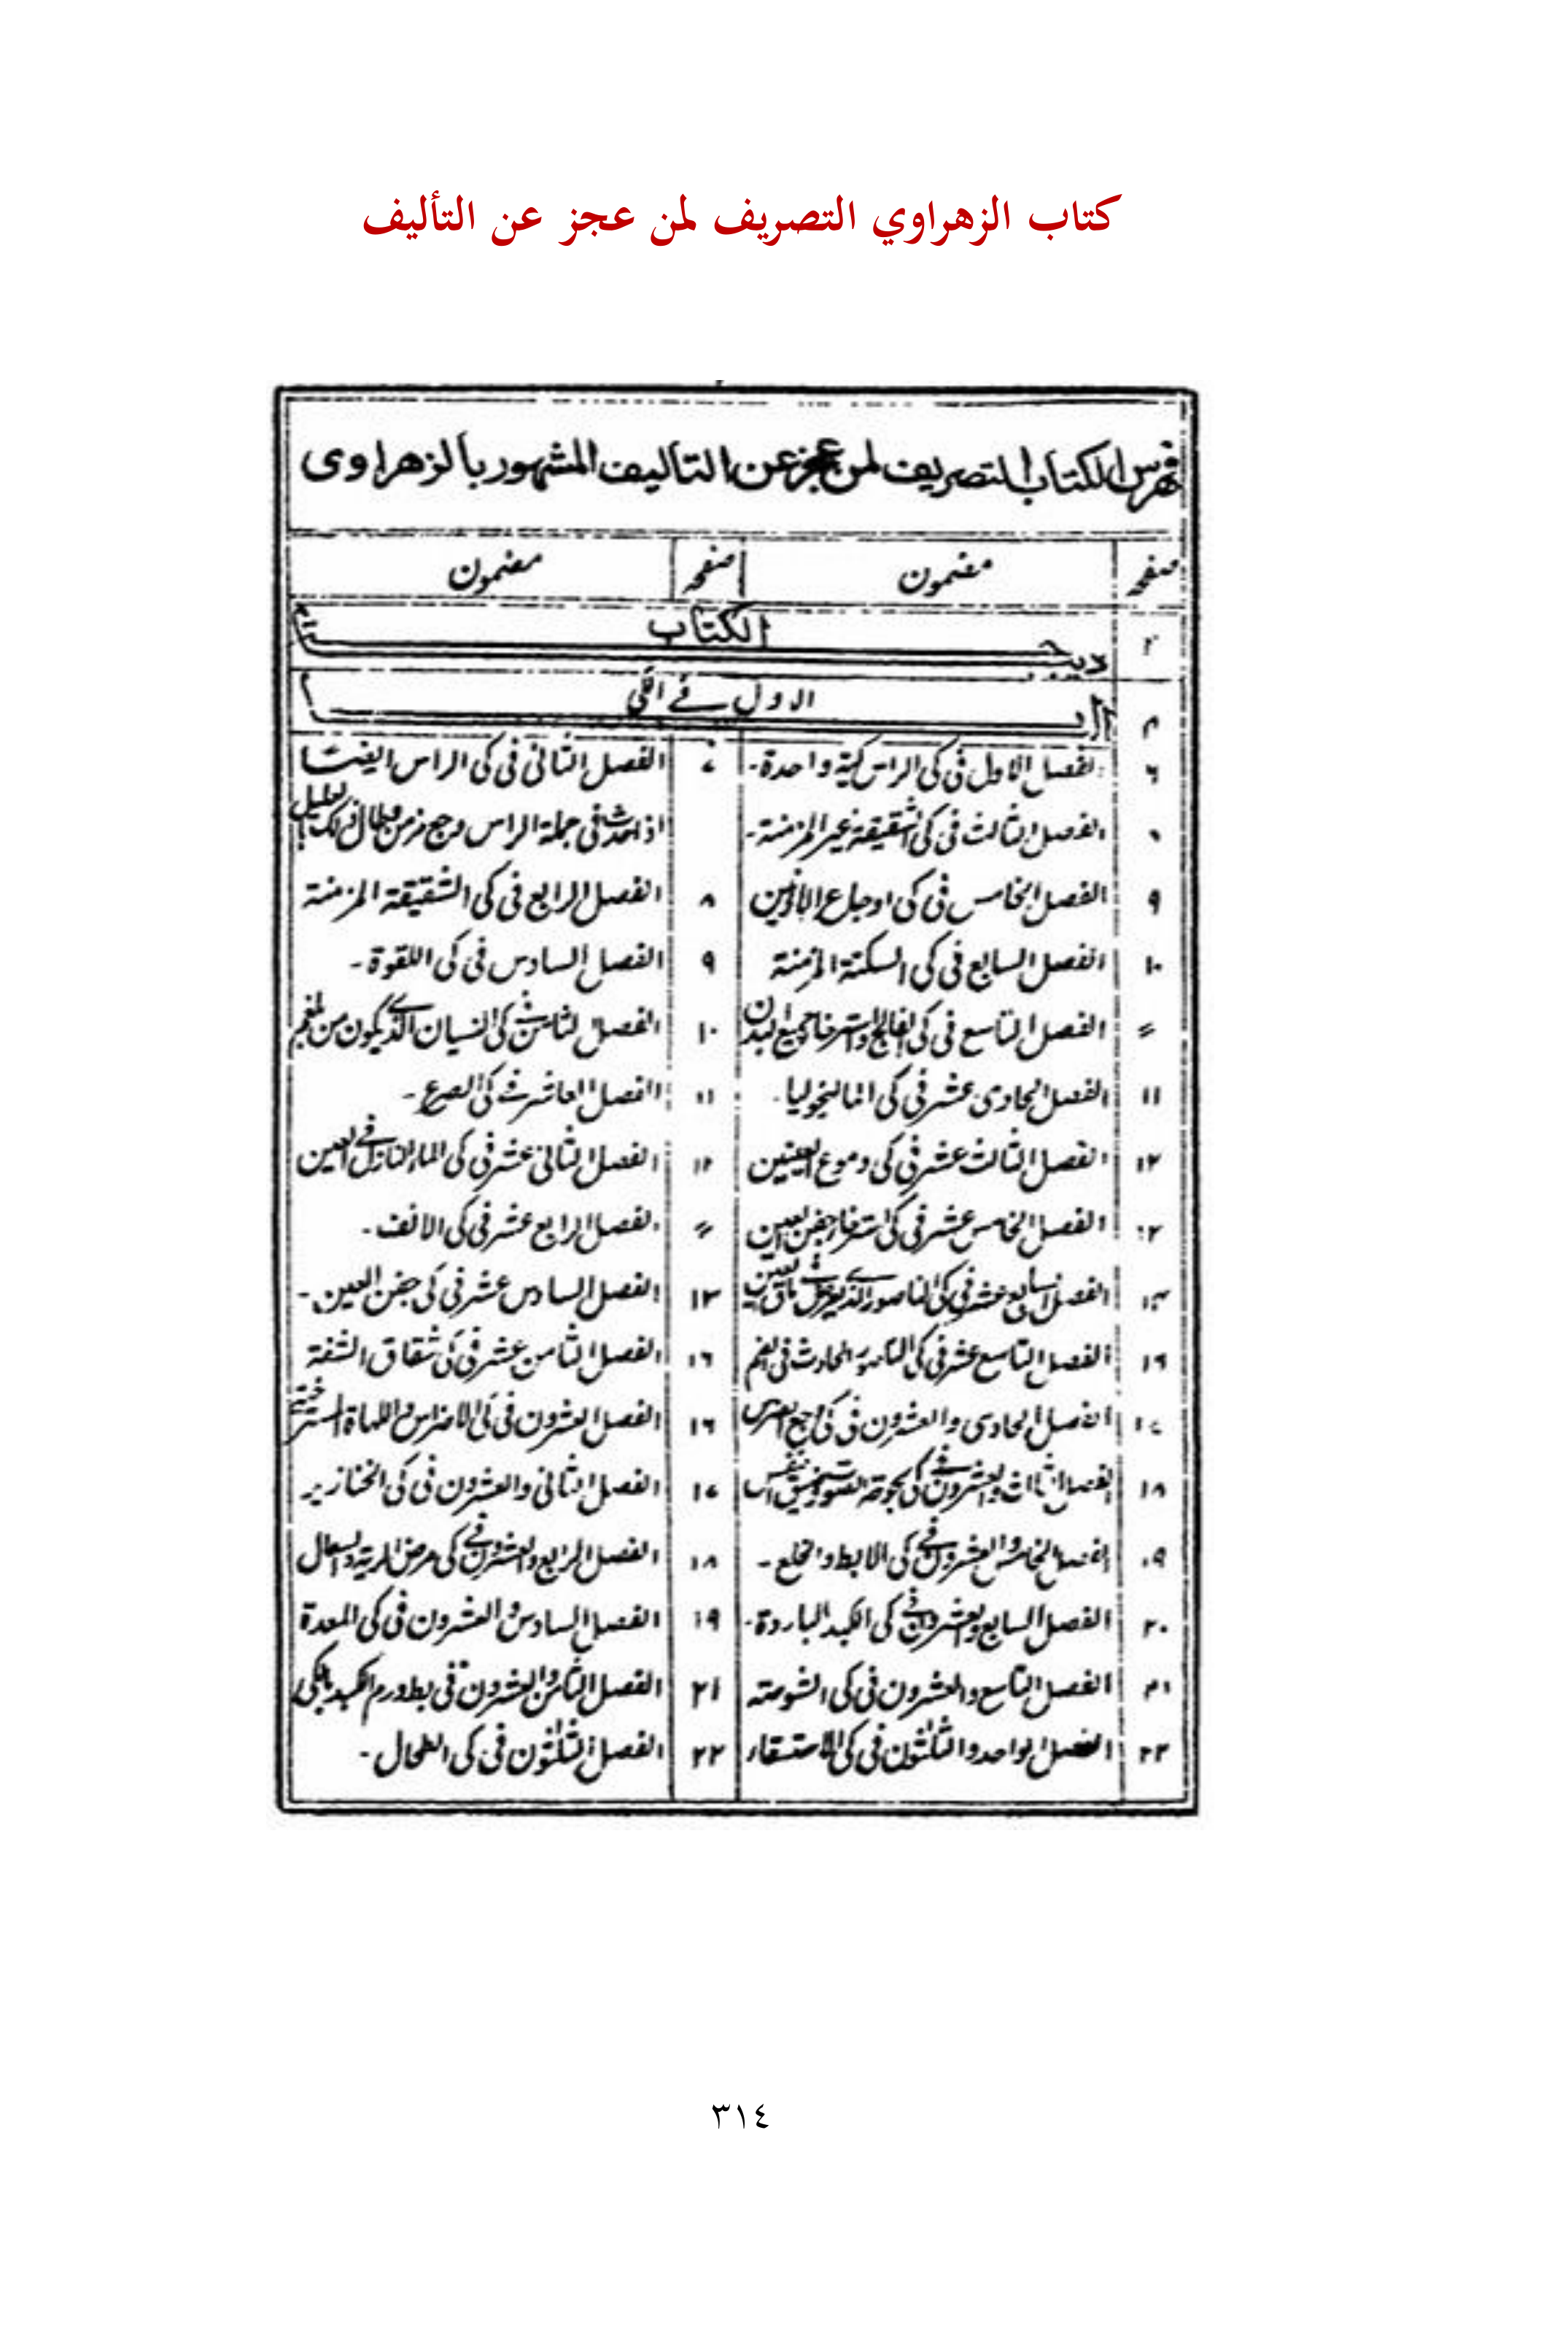 كتاب الزهراوي التصريف لمن عجز عن التأليف
فهرس الكتاب التصريف لمن عجز عن التاليف المشهور بالزهراوى
صفحه مضمون صفحه مضمون
٢ ديباجه الكتاب
الباب الاول فے الكى
٦ الفصل الاول فى كى الراس كية واحدة - ٧ الفصل الثانى فى كى الراس ايضا
الفصل الثالث فى كى الشقيقة غير المزمنة - اذا حدث فى جملة الراس وجع مزمن وطال ذلك بالعليل
٩ الفصل الخامس فى كى اوجاع الاذنين ٨ الفصل الرابع فى كى الشقيقة المزمنة
١٠ الفصل السابع فى كى السكتة المزمنة ٩ الفصل السادس فى كى اللقوة -
〃 الفصل التاسع فى كى الفالج واسترخاء جميع البدن ١٠ الفصل الثامن فے كى النسيان الذے يكون من البلغم
١١ الفصل الحادى عشر فى كى المالنخوليا - ١١ الفصل العاشر فے كى الصرع -
١٢ الفصل الثالث عشر فى كى دموع العينين ١٢ الفصل الثانى عشر فى كى الماء النازل فے العين
١٢ الفصل الخامس عشر فى كى استرخاء جفن العين 〃 الفصل الرابع عشر فى كى الانف -
١٣ الفصل السابع عشر فى كى الناصور الذے ماق العين ١٣ الفصل السادس عشر فى كى جفن العين -
١٦ الفصل التاسع عشر فى كى الناصور الحادث فى الفم ١٦ الفصل الثامن عشر فى كى شقاق الشفة
١٧ الفصل الحادى والعشرون فى كى وجع الضرس ١٦ الفصل العشرون فى كى الاضراس واللهاة المسترخية
١٨ الفصل الثالث والعشرون فے كى بحوحة الصوت وضيق النفس ١٧ الفصل الثانى والعشرون فى كى الخنازير
١٩ الفصل الخامس والعشرون فے كى الابط والخلع - ١٨ الفصل الرابع والعشرون فے كى مرض الرية والسعال
٢٠ الفصل السابع والعشرون فے كى الكبد الباردة - ١٩ الفصل السادس والعشرون فى كى المعدة
٢١ الفصل التاسع والعشرون فى كى الشوصة ٢١ الفصل الثامن والعشرون فى بط ورم الكبد بالكى
٢٢ الفصل الواحد والثلثون فى كى الاستسقاء ٢٢ الفصل الثلثون فى كى الطحال -
٣١٤